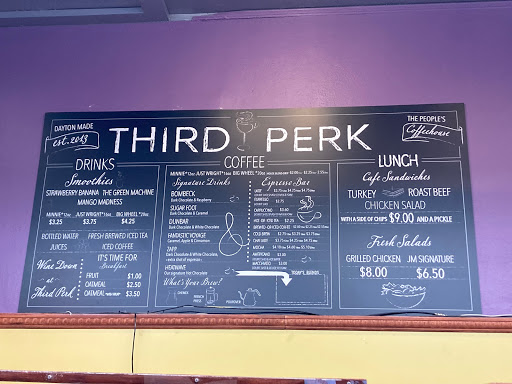 DAYTON MADE
est. 2013
THIRD PERK
THE PEOPLE'S
Coffeehouse
DRINKS
Smoothies
STRAWBERRY BANANA THE GREEN MACHINE
MANGO MADNESS
MINNIE*12oz JUST WRIGHT*16oz BIG WHEEL*20oz
$3.25 $3.75 $4.25
BOTTLED WATER FRESH BREWED ICED TEA
JUICES ICED COFFEE
Wine Down
at
Third Perk
IT'S TIME FOR
Breakfast
FRUIT $1.00
OATMEAL $2.50
OATMEAL $3.50
COFFEE
MINNIE*12oz JUST WRIGHT*16oz BIG WHEEL*20oz
Signature Drinks
BOMBECK
Dark Chocolate & Raspberry
SUGAR FOOT
Dark Chocolate & Caramel
DUNBAR
Dark Chocolate & White Chocolate
FANTASTIC VOYAGE
Caramel, Apple & Cinnamon
ZAPP
Dark Chocolate & White Chocolate,
+ extra shot of espresso
HEATWAVE
Our signature Hot Chocolate
What's Your Brew?
CHEMEX
FRENCH PRESS
POUROVER
Espresso Bar
LATTE
CAPPUCCINO
COLD BREW
CHAI LATTE
MOCHA
AMERICANO
MACCHIATO
LUNCH
Cafe Sandwiches
TURKEY ROAST BEEF
CHICKEN SALAD
WITH A SIDE OF CHIPS $9.00 AND A PICKLE
Fresh Salads
GRILLED CHICKEN JM SIGNATURE
$8.00 $6.50